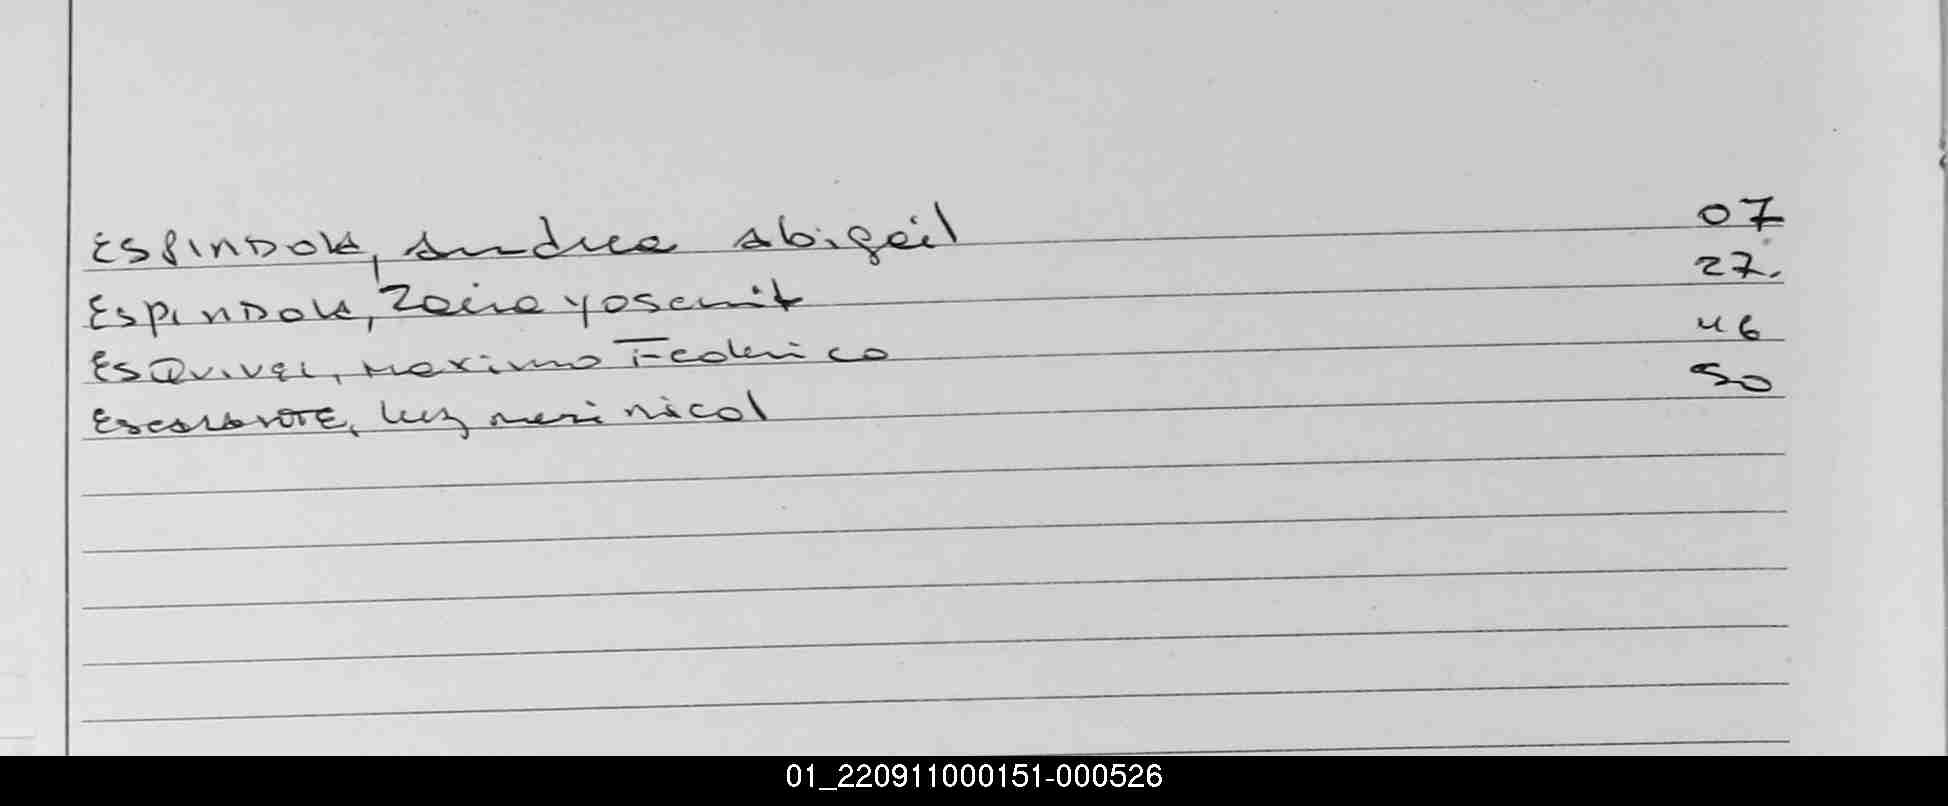 ESPINDOLA, Andrea Abigail 07
ESPINDOLA, Zaira Yosemit 27.
ESQUIVEL, Maximo Federico 46
ESCALANTE, Luz Meri Nicol 50
01_220911000151-000526